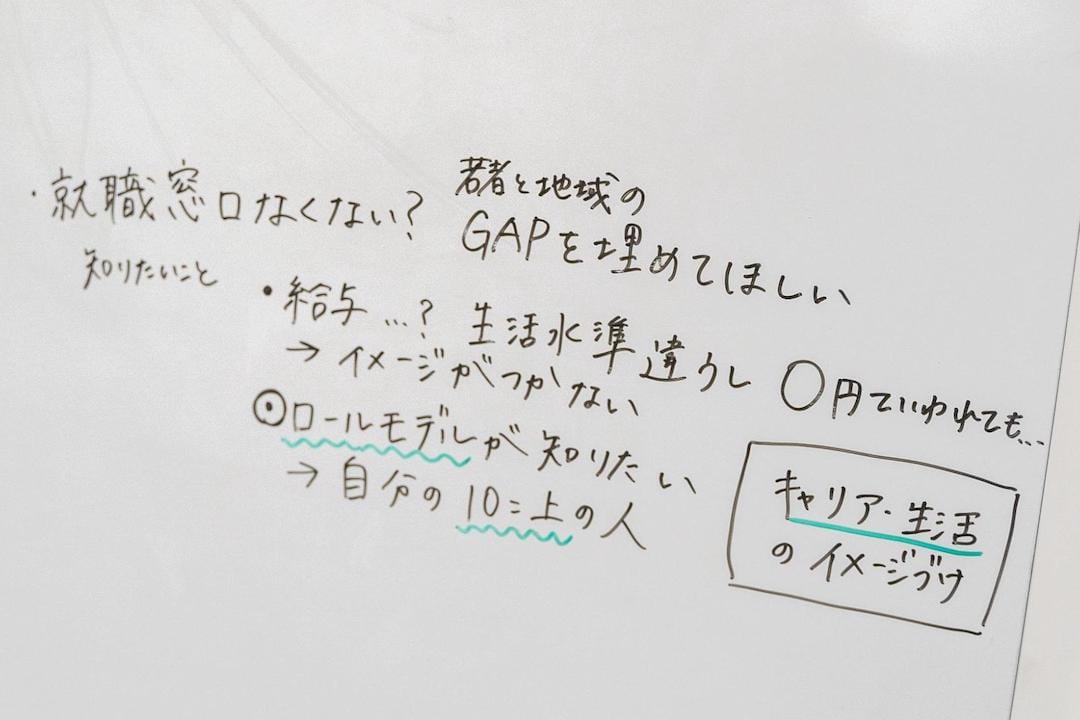 ・就職窓口なくない?
若者と地域の
GAPを埋めてほしい
知りたいこと
・給与…? 生活水準違うし 〇円ていわれても…
→ イメージがつかない
⦿ロールモデルが知りたい
→ 自分の10こ上の人
キャリア・生活
のイメージづけ